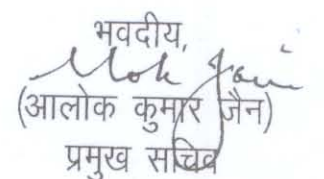 भवदीय,
Alok Jain
(आलोक कुमार जैन)
प्रमुख सचिव